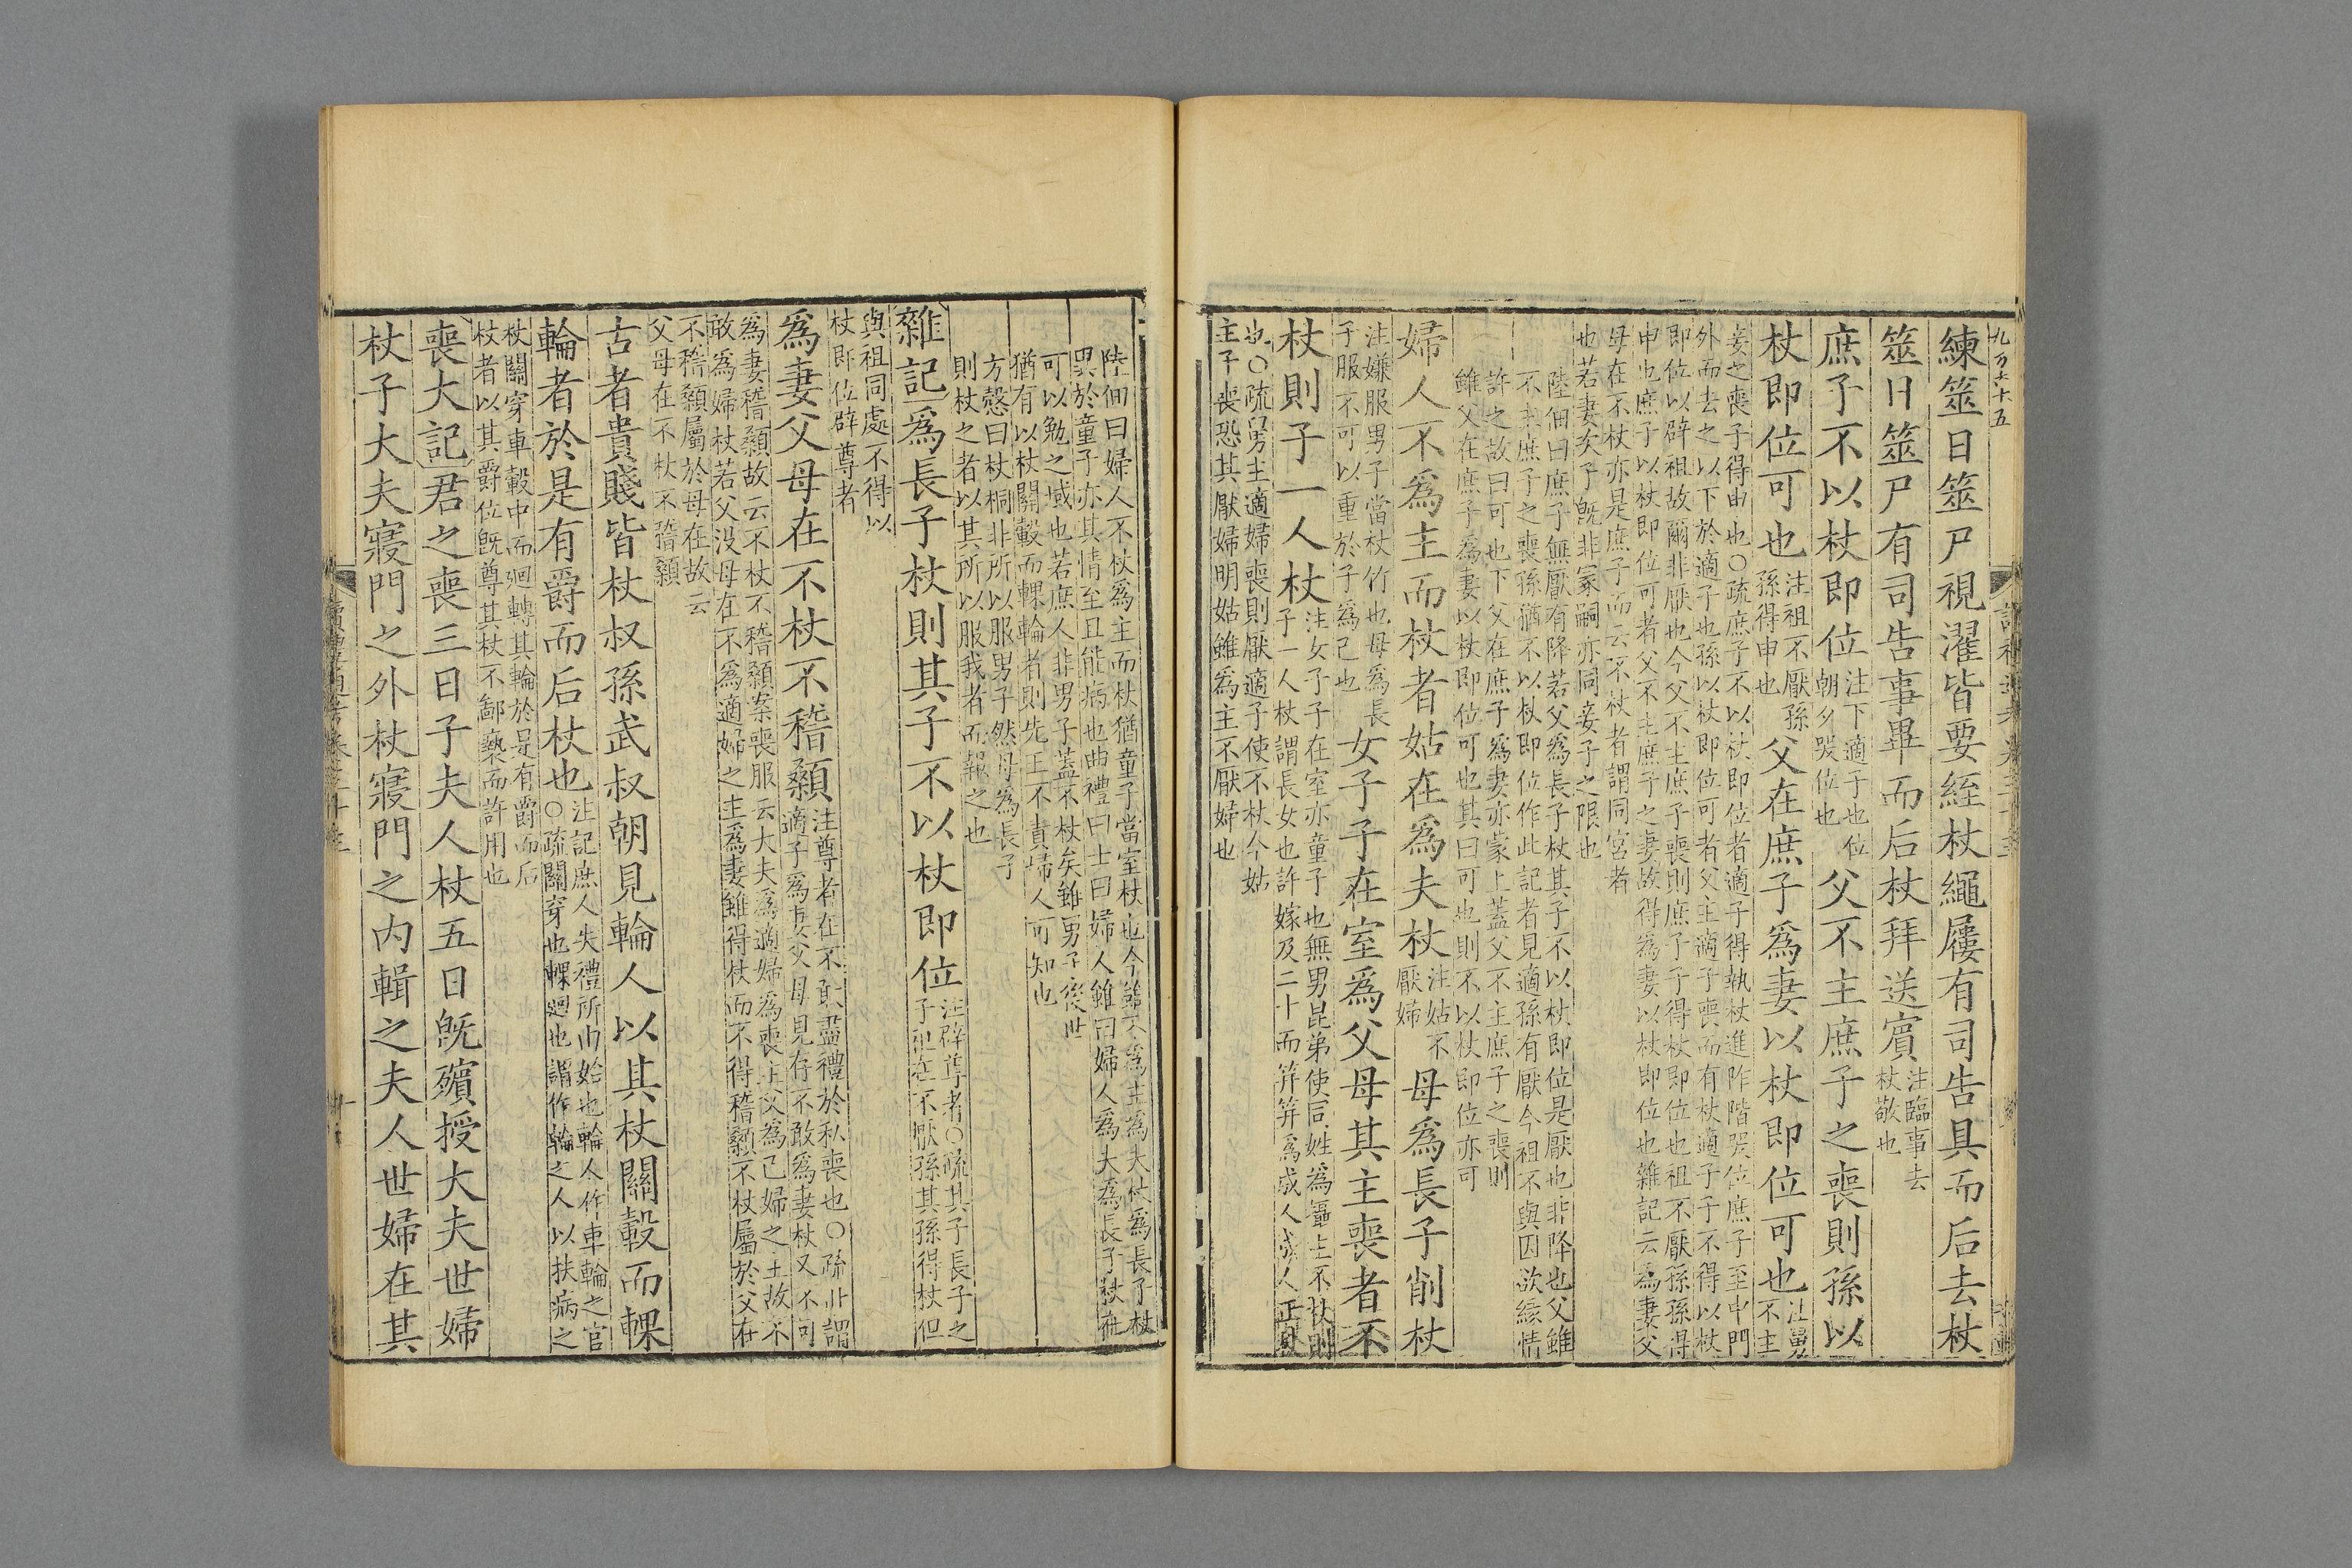 練筮日筮尸視濯皆要絰杖繩屨有司告具而后去杖
筮日筮尸有司告事畢而后杖拜送賓注臨事去杖敬也
庶子不以杖即位注下適子也位朝夕哭位也父不主庶子之喪則孫以
杖即位可也注祖不厭孫孫得申也父在庶子爲妻以杖即位可也注舅不主
妾之喪子得申也○疏庶子不以杖即位者適子得執杖進阼階哭位庶子至中門
外而去之以下於適子也孫以杖即位可者父主適子喪而有杖適子子不得以杖
即位以辟祖故爾非厭也今父不主庶子喪則庶子子得杖即位也祖不厭孫孫得
申也庶子以杖即位可者父不主庶子之妻故得爲妻以杖即位也雜記云爲妻父
母在不杖亦是庶子而云不杖者謂同宮者
也若妻矣子既非冢嗣亦同妾子之限也
陸佃曰庶子無厭有降若父爲長子杖其子不以杖即位是厭也非降也父雖
不主庶子之喪孫猶不以杖即位作此記者見適孫有厭今祖不與因欲綏情
許之故曰可也下父在庶子爲妻亦蒙上蓋父不主庶子之喪則
雖父在庶子爲妻以杖即位可也其曰可也則不以杖即位亦可
婦人不爲主而杖者姑在爲夫杖注姑不厭婦母爲長子削杖
注嫌服男子當杖竹也母爲長
子服不可以重於子爲己也女子子在室爲父母其主喪者不
杖則子一人杖注女子子在室亦童子也無男昆弟使同姓爲攝主不杖則
子一人杖謂長女也許嫁及二十而筓筓爲成人成人正杖
也○疏曰男主適婦喪則厭適子使不杖今姑
主子喪恐其厭婦明姑雖爲主不厭婦也
陸佃曰婦人不杖爲主而杖猶童子當室杖也今雖不爲主爲夫杖爲長子杖
異於童子亦其情至且能病也曲禮曰士曰婦人雖曰婦人爲夫爲長子杖在
可以勉之域也若庶人非男子蓋不杖矣雖男子後世
猶有以杖關轂而輠輪者則先王不責婦人可知也
方慤曰杖桐非所以服男子然母爲長子
則杖之者以其所以服我者而報之也
雜記爲長子杖則其子不以杖即位注辟尊者○疏其子長子之
子祖在不厭孫其孫得杖但
與祖同處不得以
杖即位辟尊者
爲妻父母在不杖不稽顙注尊者在不敢盡禮於私喪也○疏此謂
適子爲妻父母見存不敢爲妻杖又不可
爲妻稽顙故云不杖不稽顙案喪服云大夫爲適婦爲喪主父爲己婦之主故不
敢爲婦杖若父没母在不爲適婦之主爲妻雖得杖而不得稽顙不杖屬於父在
不稽顙屬於母在故云
父母在不杖不稽顙
古者貴賤皆杖叔孫武叔朝見輪人以其杖關轂而輠
輪者於是有爵而后杖也注記庶人失禮所由始也輪人作車輪之官
○疏關穿也輠廻也謂作輪之人以扶病之
杖關穿車轂中而廻轉其輪於是有爵而后
杖者以其爵位既尊其杖不鄙褻而許用也
喪大記君之喪三日子夫人杖五日既殯授大夫世婦
杖子大夫寢門之外杖寢門之内輯之夫人世婦在其